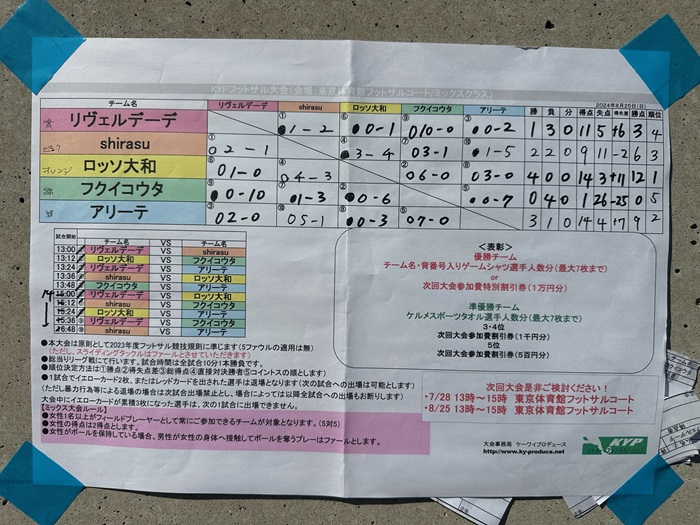 KYPフットサル大会(会場 東京体育館フットサルコート/ミックスクラス)
2024年8月25日(日)
チーム名 リヴェルデーデ shirasu ロッソ大和 フクイコウタ アリーテ 勝 負 分 得点 失点 得失差 勝点 順位
リヴェルデーデ ①●1-2 ⑥●0-1 ⑨○10-0 ③●0-2 1 3 0 11 5 +6 3 4
shirasu ①○2-1 ④●3-4 ⑦○3-1 ⑩●1-5 2 2 0 9 11 -2 6 3
オレンジ ロッソ大和 ⑥○1-0 ④○4-3 ②○6-0 ⑧○3-0 4 0 0 14 3 +11 12 1
フクイコウタ ⑨●0-10 ⑦●1-3 ②●0-6 ⑤●0-7 0 4 0 1 26 -25 0 5
アリーテ ③○2-0 ⑩○5-1 ⑧●0-3 ⑤○7-0 3 1 0 14 4 9 2
試合開始 チーム名 VS チーム名
13:00 リヴェルデーデ VS shirasu
13:12 ロッソ大和 VS フクイコウタ
13:24 リヴェルデーデ VS アリーテ
13:36 shirasu VS ロッソ大和
13:48 フクイコウタ VS アリーテ
14 15:00 リヴェルデーデ VS ロッソ大和
15:12 shirasu VS フクイコウタ
15:24 ロッソ大和 VS アリーテ
15:36 リヴェルデーデ VS フクイコウタ
shirasu VS アリーテ
<表彰>
優勝チーム
チーム名・背番号入りゲームシャツ選手人数分(最大7枚まで)
or
次回大会参加費特別割引券(1万円分)
準優勝チーム
ケルメスポーツタオル選手人数分(最大7枚まで)
3・4位
次回大会参加費割引券(1千円分)
5位
次回大会参加費割引券(5百円分)
●本大会は原則として2023年度フットサル競技規則に準じます(5ファウルの適用は無)
(ただし、スライディングタックルはファールとさせていただきます)
●総当りリーグ戦にて行います。試合時間は全試合10分1本勝負です。
●順位決定方法は①勝点②得失点差③総得点④直接対決勝者⑤コイントスの順とします
●1試合でイエローカード2枚、またはレッドカードを出された選手は退場となります(次の試合への出場は可能とします)
(ただし暴力行為等による退場の場合は次試合出場禁止とし、場合によっては以降全試合への出場もお断りします)
大会中にイエローカードが累積3枚になった選手は、次の1試合に出場できません。
【ミックス大会ルール】
●女性1名以上がフィールドプレーヤーとして常にご参加できるチームが対象となります。(5対5)
●女性の得点は2得点とします。
●女性がボールを保持している場合、男性が女性の身体へ接触してボールを奪うプレーはファールとします。
次回大会是非ご検討ください!
・7/28 13時~15時 東京体育館フットサルコート
・8/25 13時~15時 東京体育館フットサルコート
大会事務局 ケーワイプロデュース
http://www.ky-produce.net
KYP